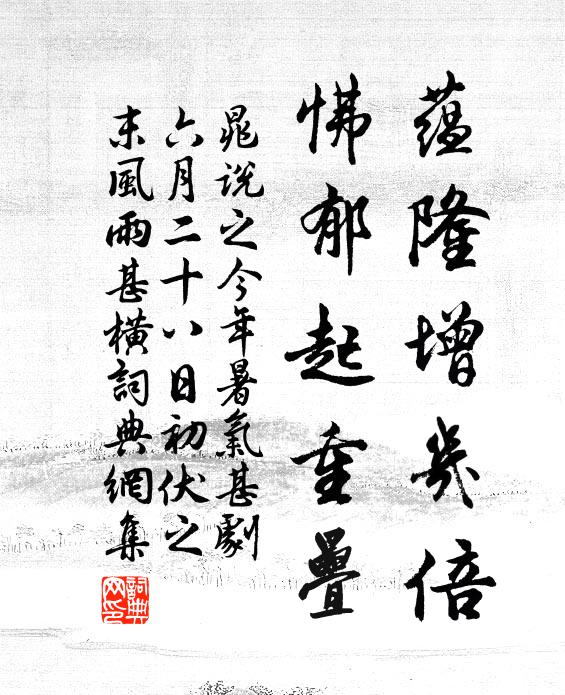 蕴隆增几倍
怫郁起重疊
晁说之今年暑氣甚劇
六月二十八日初伏之
末風雨甚橫詞典網集
詞典
网印